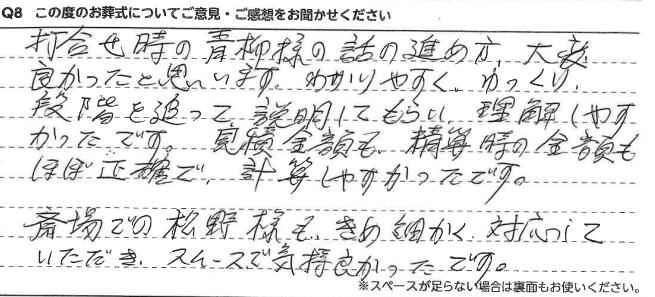 Q8 この度のお葬式についてご意見・ご感想をお聞かせください
打合せ時の青柳様の話の進め方、大変
良かったと思います。わかりやすく、ゆっくり、
段階を追って、説明してもらい、理解しやす
かったです。見積金額も、精算時の金額も
ほぼ正確で、計算しやすかったです。
斎場での松野様も、きめ細かく、対応して
いただき、スムースで気持良かったです。
※スペースが足らない場合は裏面もお使いください。